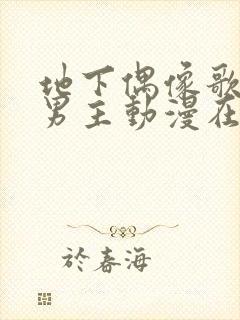 地下偶像歌
男主動漫在
於春海